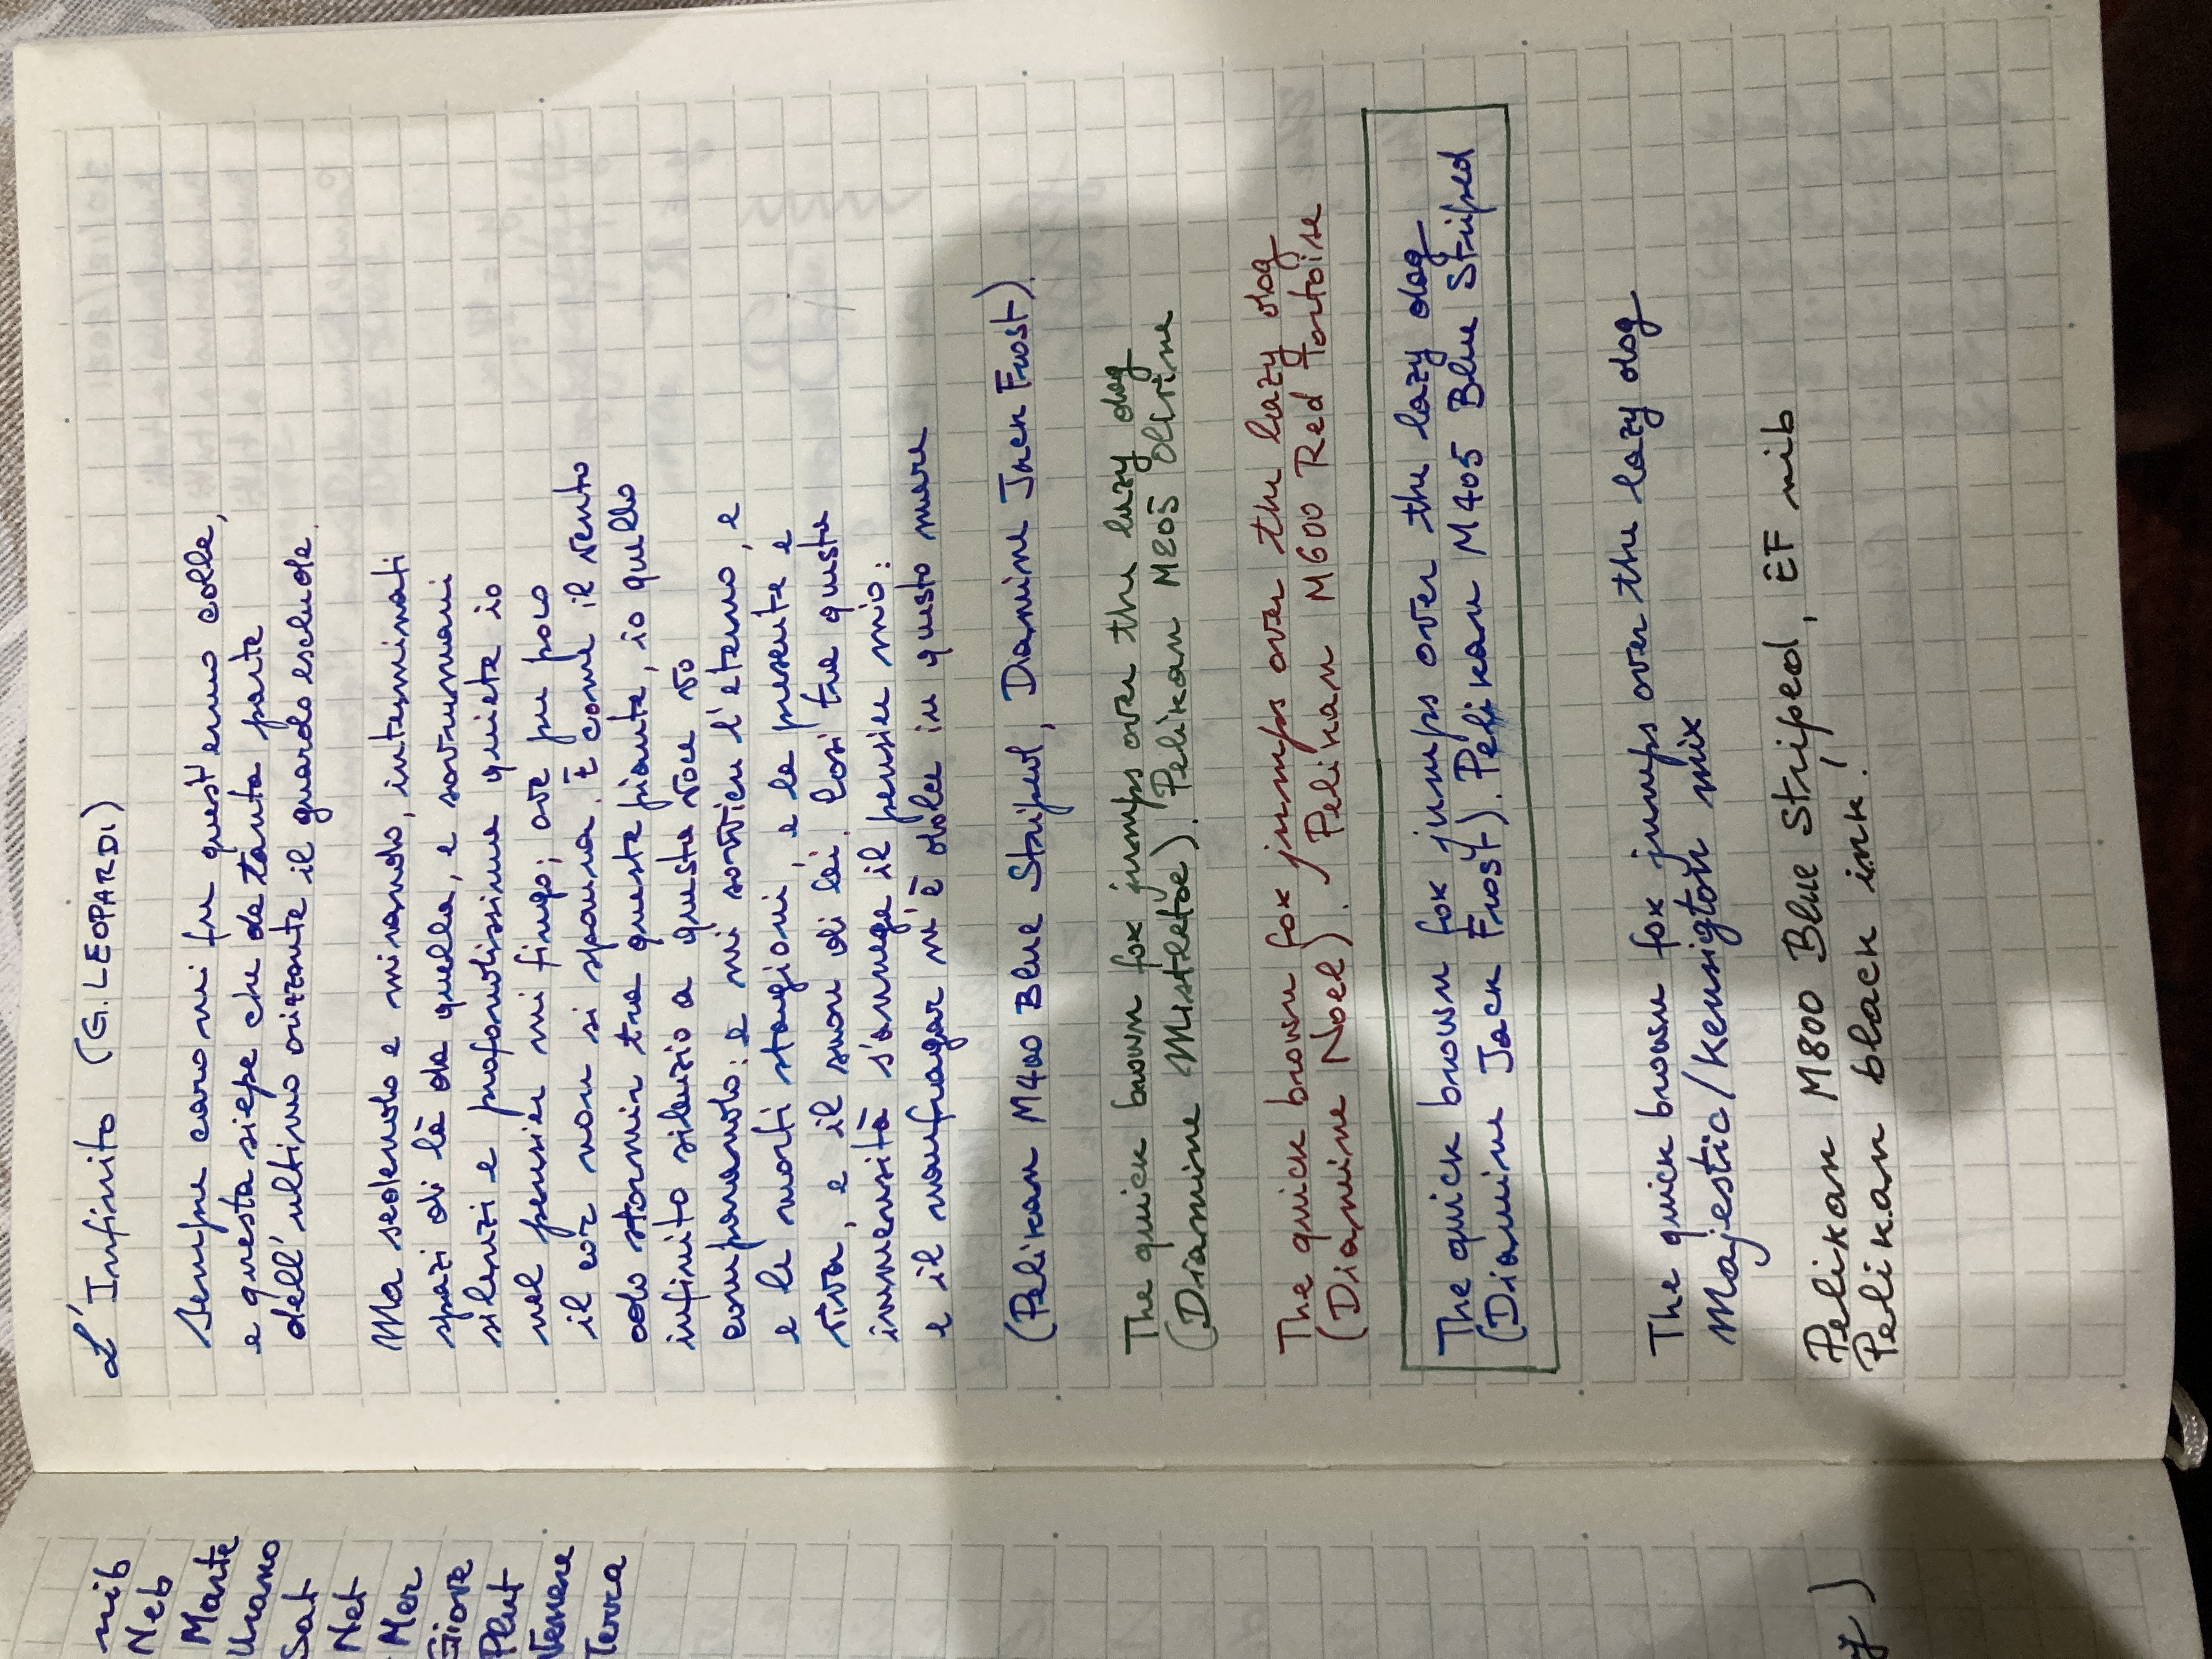 L'Infinito (G. LEOPARDI)
Sempre caro mi fu quest'ermo colle,
e questa siepe che da tanta parte
dell'ultimo orizzonte il guardo esclude.
Ma sedendo e mirando, interminati
spazi di là da quella, e sovrumani
silenzi e profondissima quiete io
nel pensier mi fingo; ove per poco
il cor non si spaura. E come il vento
odo stormir tra queste piante, io quello
infinito silenzio a questa voce vo
comparando: e mi sovvien l'eterno, e
e le morti stagioni, e la presente e
viva, e il suon di lei. Così tra questa
immensità s'annega il pensier mio:
e il naufragar m'è dolce in questo mare
(Pelikan M400 Blue Striped, Diamine Jack Frost).
The quick brown fox jumps over the lazy dog
(Diamine Mistletoe). Pelikan M205 Olivine
The quick brown fox jumps over the lazy dog
(Diamine Noel). Pelikan M600 Red Tortoise
The quick brown fox jumps over the lazy dog
(Diamine Jack Frost). Pelikan M405 Blue Striped
The quick brown fox jumps over the lazy dog
Majestic/Kensigton mix
Pelikan M800 Blue Striped, EF nib
Pelikan black ink!
nib
Neb
Marte
Urano
Sat
Net
Mer
Giove
Plut
Venere
Terra